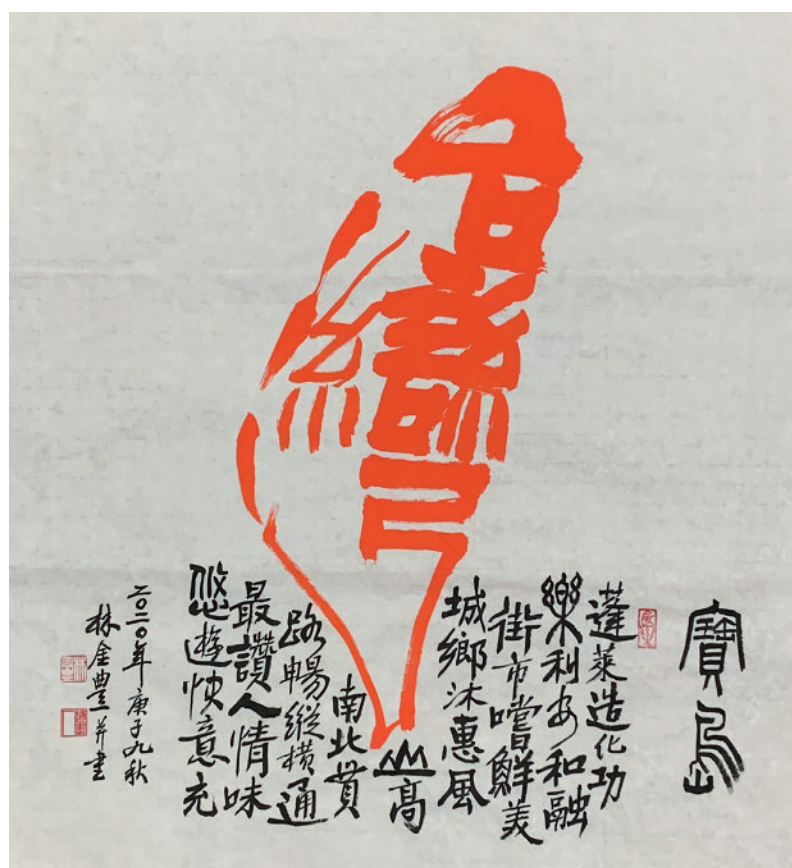 台灣
寶島
蓬萊造化功
樂利安和融
街市嚐鮮美
城鄉沐惠風
山高
南北貫
路暢縱橫通
最讚人情味
悠遊快意充
二〇二〇年庚子九秋
林金豐并書